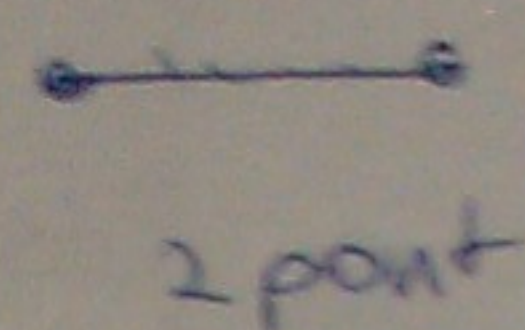 2 pont